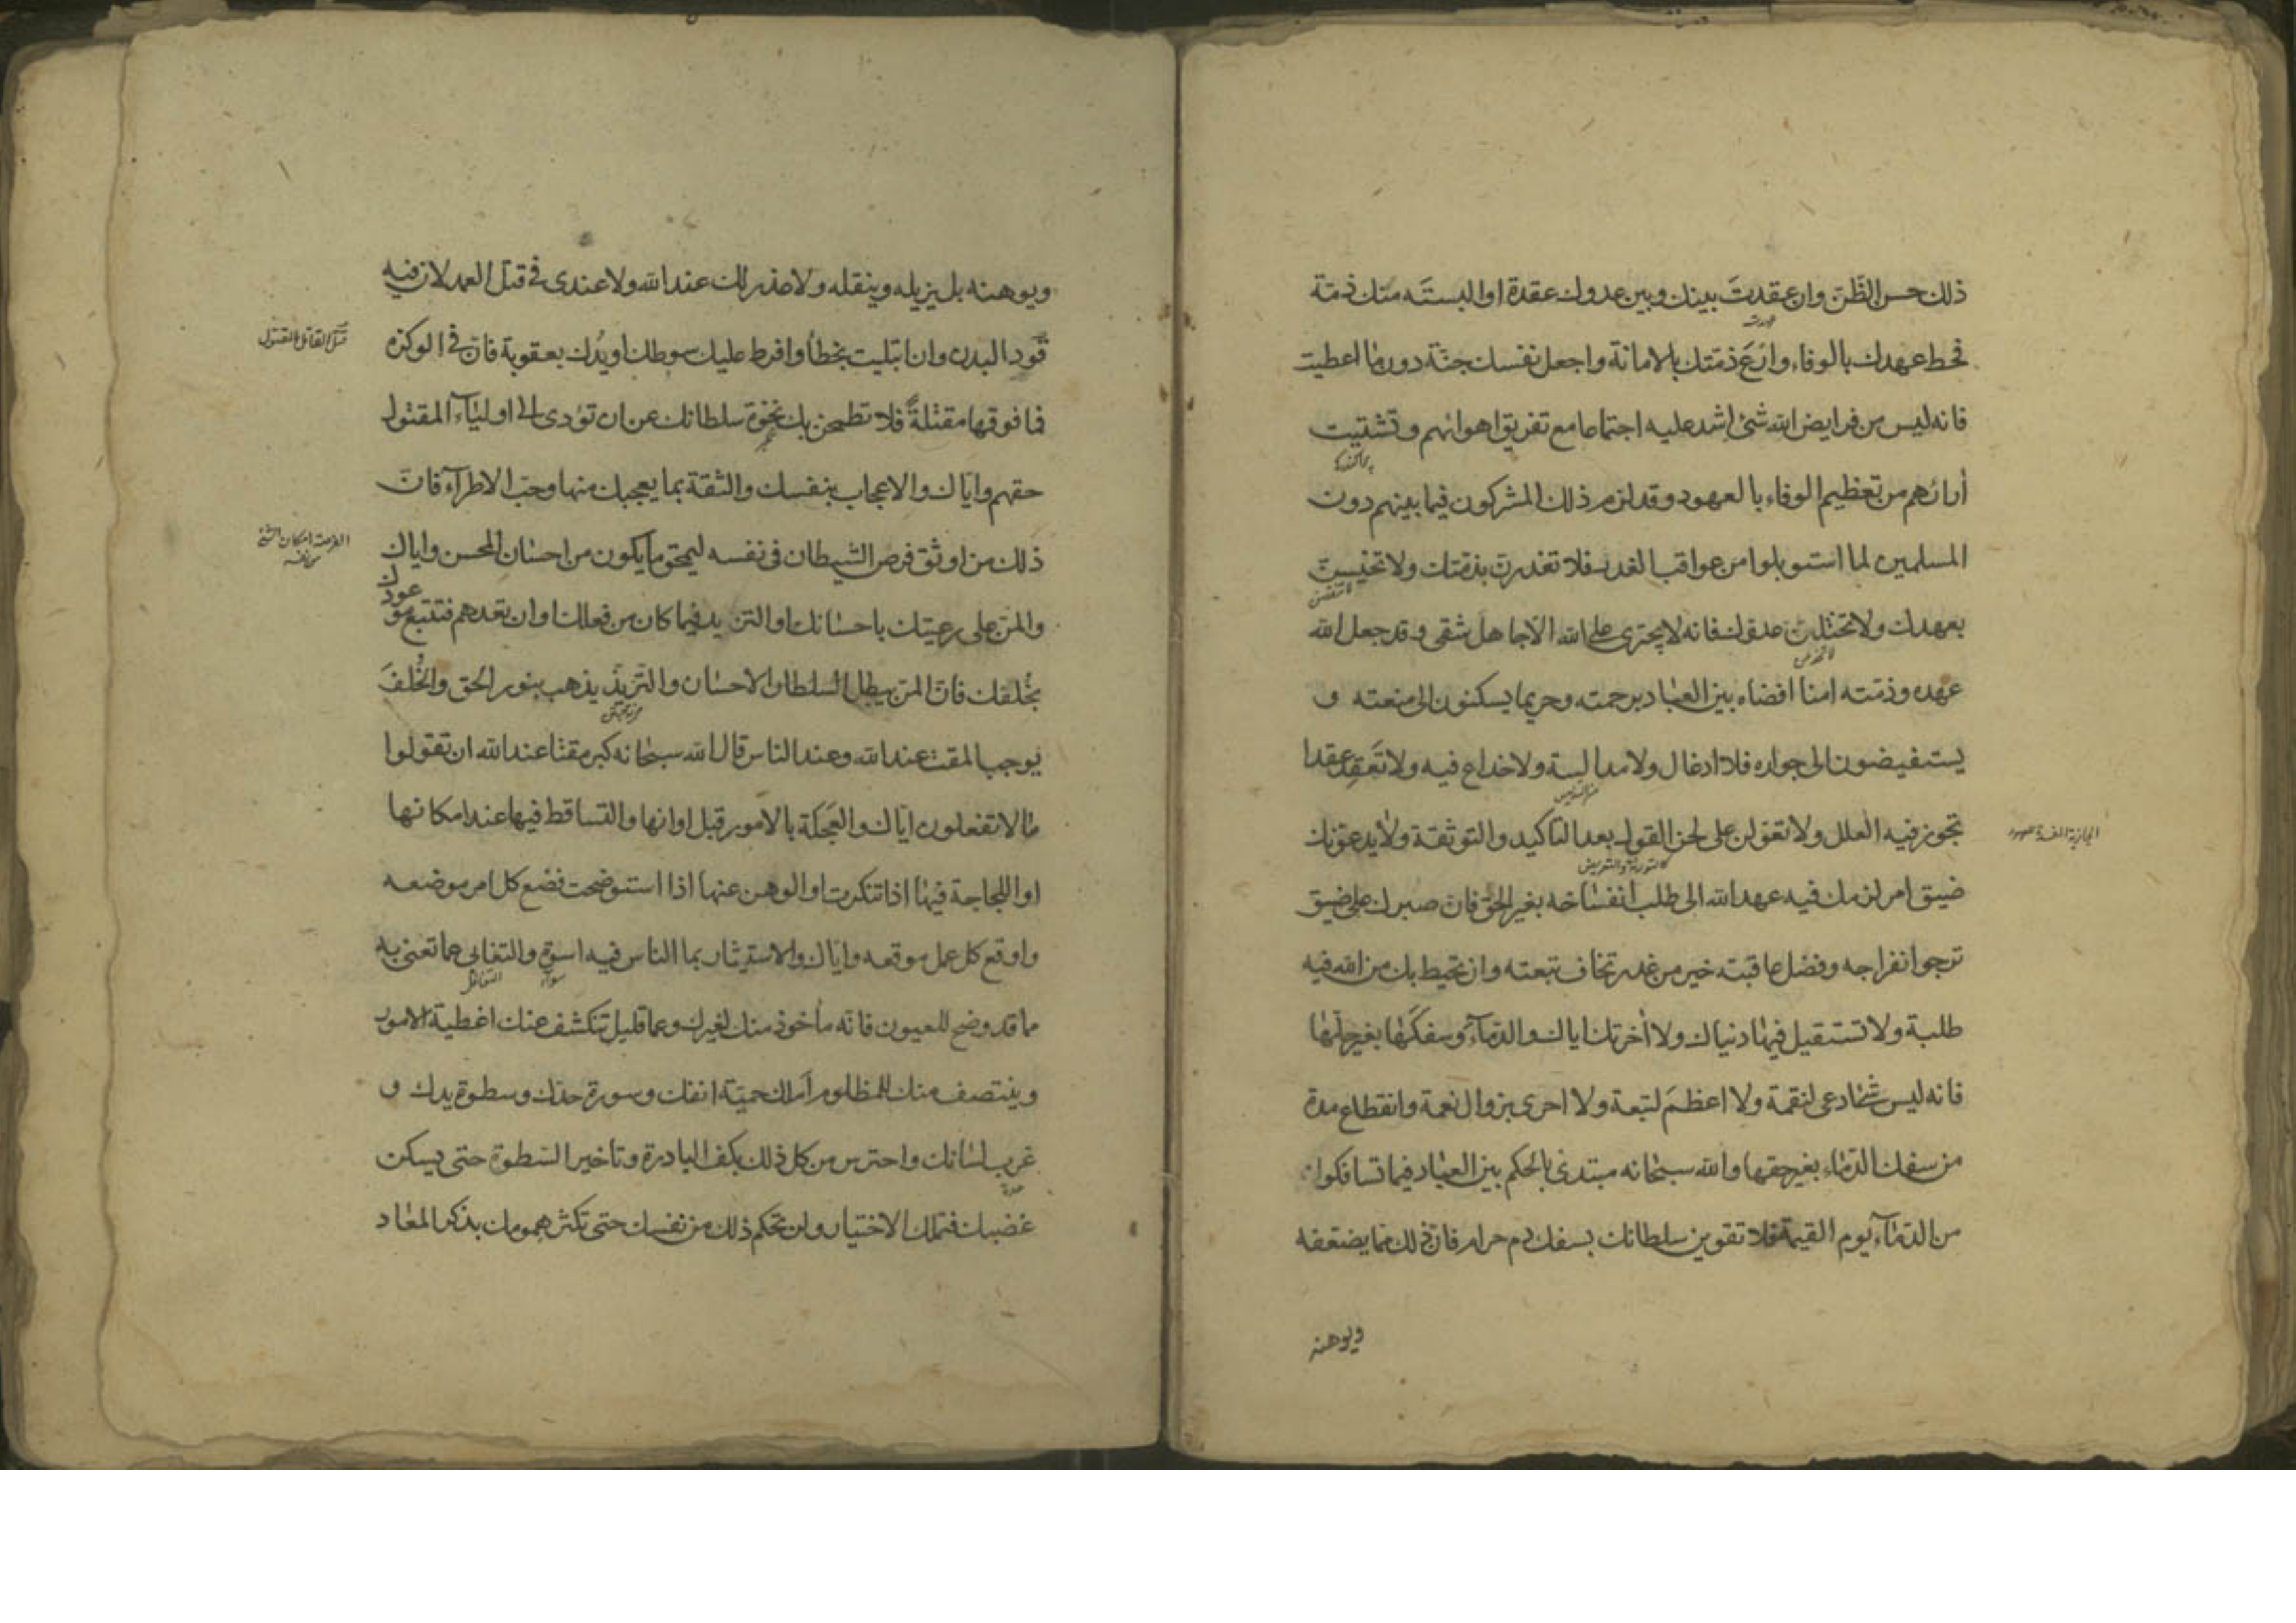 ذلك حسن الظّنّ وان عقدتَ بينك وبين عدوك عقدة او البسته منك ذمّة
فحط عهدك بالوفاء وارْعَ ذمّتك بالامانة واجعل نفسك جنّة دون ما اعطيت
فانه ليس من فرايض الله شئ اشد عليه اجتماعا مع تفريق اهوائهم وتشتيت
أرائهم من تعظيم الوفاء بالعهود وقد لزم ذلك المشركون فيما بينهم دون
المسلمين لما استوبلوا من عواقب الغدر فلا تغدرن بذمّتك ولا تخيسنّ
لا تنقضن
بعهدك ولا تختلنّ عدوّك فانه لا يجترى على الله الا جاهل شقى وقد جعل الله
عهده وذمّته امنا افضاه بين العباد برحمته وحريما يسكنون الى منعته و
يستفيضون الى جواره فلا ادغال ولا مدالسة ولا خداع فيه ولا تَعقِد عقدا
تجوز فيه العلل ولا تعوّلن على لحن القول بعد التاكيد والتوثقة ولا يدعونّك
كالتورية والتعريض
ضيق امر لزمك فيه عهد الله الى طلب انفساخه بغير الحق فان صبرك على ضيق
ترجوا انفراجه وفضل عاقبته خير من غدر تخاف تبعته وان تحيط بك من الله فيه
طلبة ولا تستقيل فيها دنياك ولا أخرتك اياك والدمآء وسفكها بغير حلّها
فانه ليس شئ ادعى لنقمة ولا اعظمَ لتبعة ولا احرى بزوال نعمة وانقطاع مدة
من سفك الدّماء بغير حقها والله سبحانه مبتدئ بالحكم بين العباد فيما تسافكوا
من الدّمآء يوم القيمة فلا تقوين سلطانك بسفك دم حرام فان ذلك مما يضعفه
ويوهنه
ويوهنه بل يزيله وينقله ولا عذر لك عند الله ولا عندى فى قتل العمد لان فيه
قَود البدن وان ابتليت بخطأ وافرط عليك سوطك او يدُك بعقوبة فانّ فى الوكزة
فما فوقها مقتلةً فلا تطمحن بك نخوة سلطانك عن ان تؤدى الى اوليآء المقتول
حقهم وايّاك والاعجاب بنفسك والثقة بما يعجبك منها وحبّ الاطرآء فانّ
ذلك من اوثق فرص الشيطان فى نفسه ليمحق ما يكون من احسان المحسن واياك
والمنّ على رعيتك باحسانك او التزيد فيما كان من فعلك او ان تعدهم فتتبع موعودك
بخُلفك فان المنّ يبطل الاحسان والتّزيّد يذهب بنور الحق والخُلفَ
يوجب المقت عند الله وعند الناس قال الله سبحانه كبر مقتا عند الله ان تقولوا
ما لا تفعلون ايّاك والعَجَلة بالامور قبل اوانها والتساقط فيها عند امكانها
او اللجاجة فيها اذا تنكرت او الوهن عنها اذا استوضحت فضع كل امر موضعه
واوقع كل عمل موقعه وايّاك والاستيثار بما الناس فيه اسوة والتغابى عما تعنى به
سواء
التغافل
مما قد وضح للعيون فانّه مأخوذ منك لغيرك وعما قليل تنكشف عنك اغطية الامور
وينتصف منك للمظلوم أملك حميّة انفك وسورة حدّك وسطوة يدك و
غرب لسانك واحترس من كل ذلك بكف البادرة وتاخير السّطوة حتى يسكن
حدة
غضبك فتملك الاختيار ولن تحكم ذلك من نفسك حتى تكثر همومك بذكر المعاد